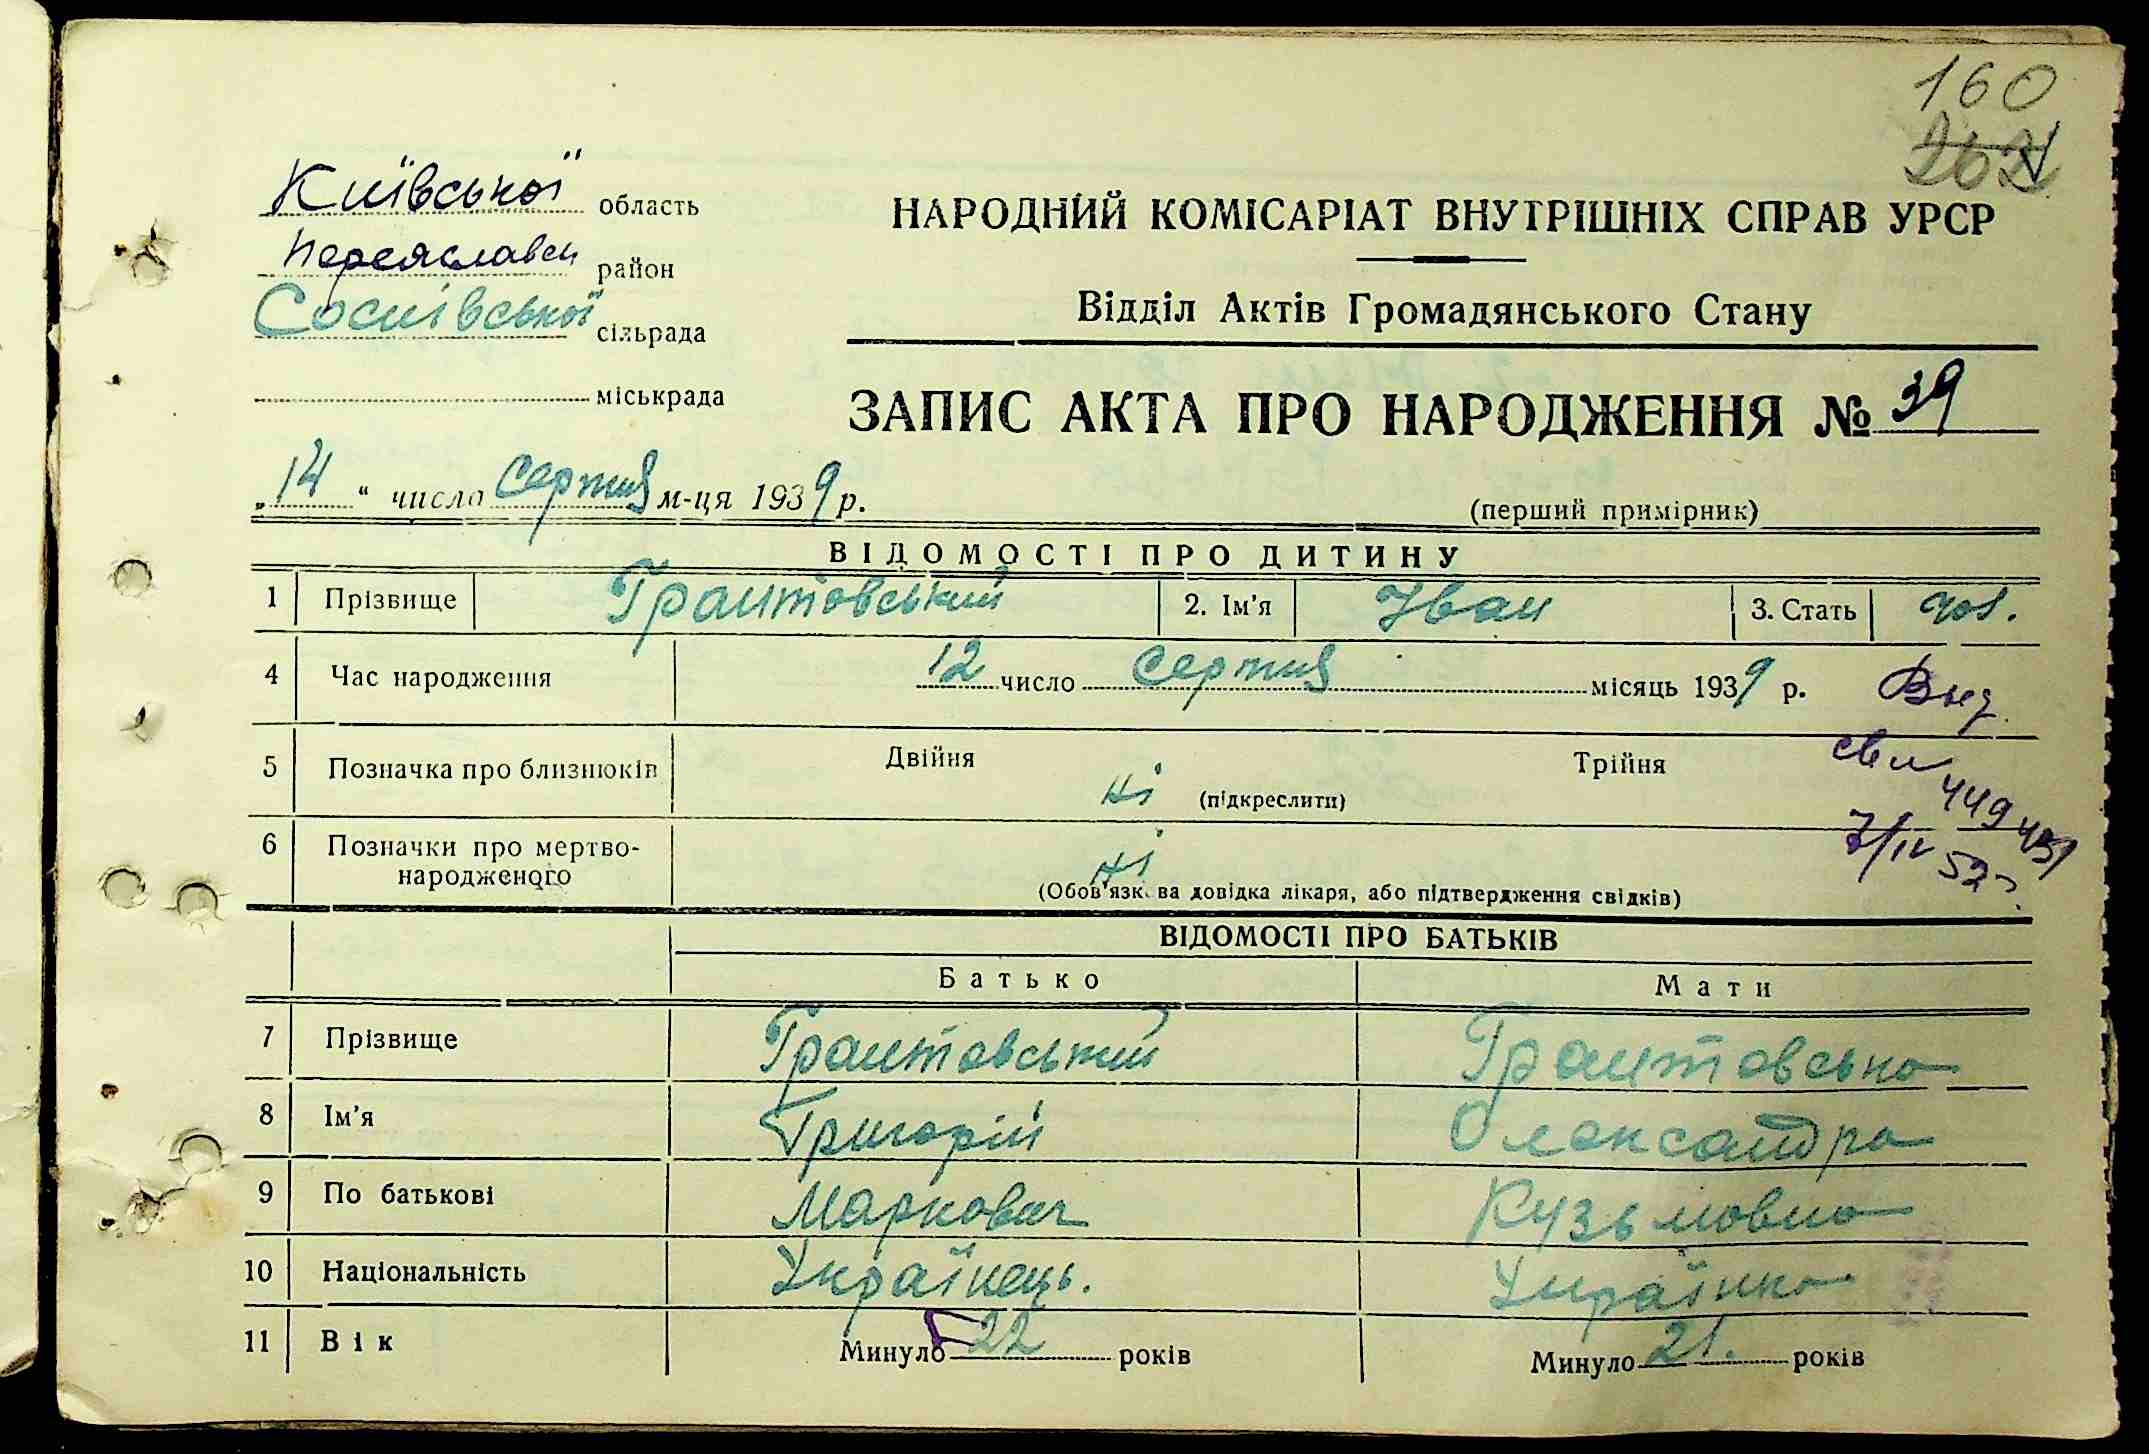 160
262
Київської область
Переяславськ район
Соснівської сільрада
міськрада
НАРОДНИЙ КОМІСАРІАТ ВНУТРІШНІХ СПРАВ УРСР
Відділ Актів Громадянського Стану
ЗАПИС АКТА ПРО НАРОДЖЕННЯ № 39
„14“ число серпня м-ця 1939 р.
(перший примірник)
ВІДОМОСТІ ПРО ДИТИНУ
1 Прізвище Грантовський 2. Ім'я Іван 3. Стать чол.
4 Час народження 12 число серпня місяць 1939 р.
Вид.
5 Позначка про близнюків Двійня ні (підкреслити) Трійня
св
449
7/IV 52 г.
6 Позначки про мертво-
народженого ні
(Обов'язк. ва довідка лікаря, або підтвердження свідків)
ВІДОМОСТІ ПРО БАТЬКІВ
Батько Мати
7 Прізвище Грантовський Грантовська
8 Ім'я Григорій Олександра
9 По батькові Маркович Кузьмовна
10 Національність Українець. Українка
11 Вік Минуло 22 років Минуло 21. років